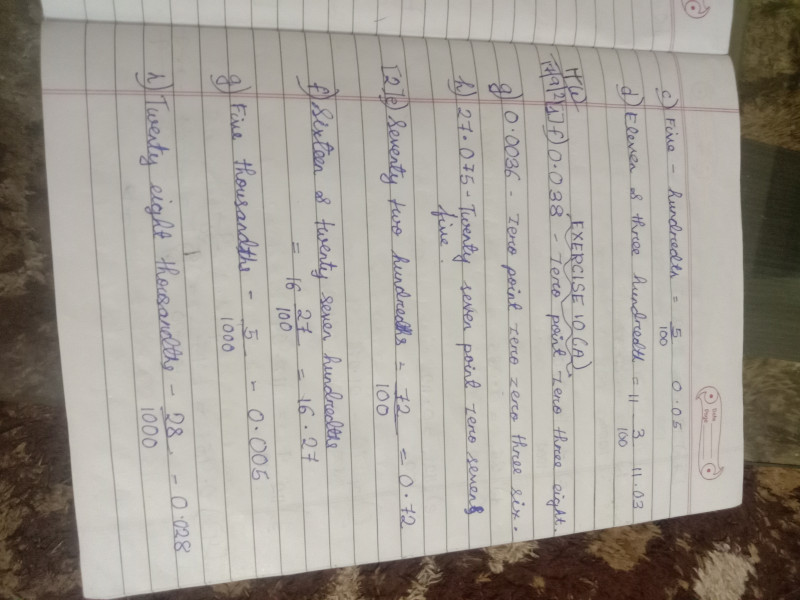 c) Five - hundredth = 5/100 0.05
d) Eleven & three hundredth = 11 3/100 11.03
EXERCISE 10(A)
H.W
f) 0.038 - Zero point zero three eight.
g) 0.0036 - Zero point zero zero three six.
h) 27.075 - Twenty seven point zero seven
five.
[2] e) Seventy two hundredths = 72/100 = 0.72
f) Sixteen & twenty seven hundredths
= 16 27/100 = 16.27
g) Five thousandths - 5/1000 - 0.005
h) Twenty eight thousandths - 28/1000 - 0.028